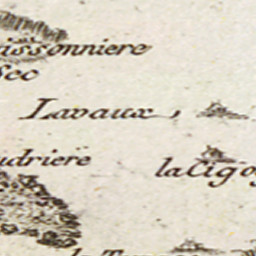 issonniere
Sec
Lavaux
udriere
la Cigo